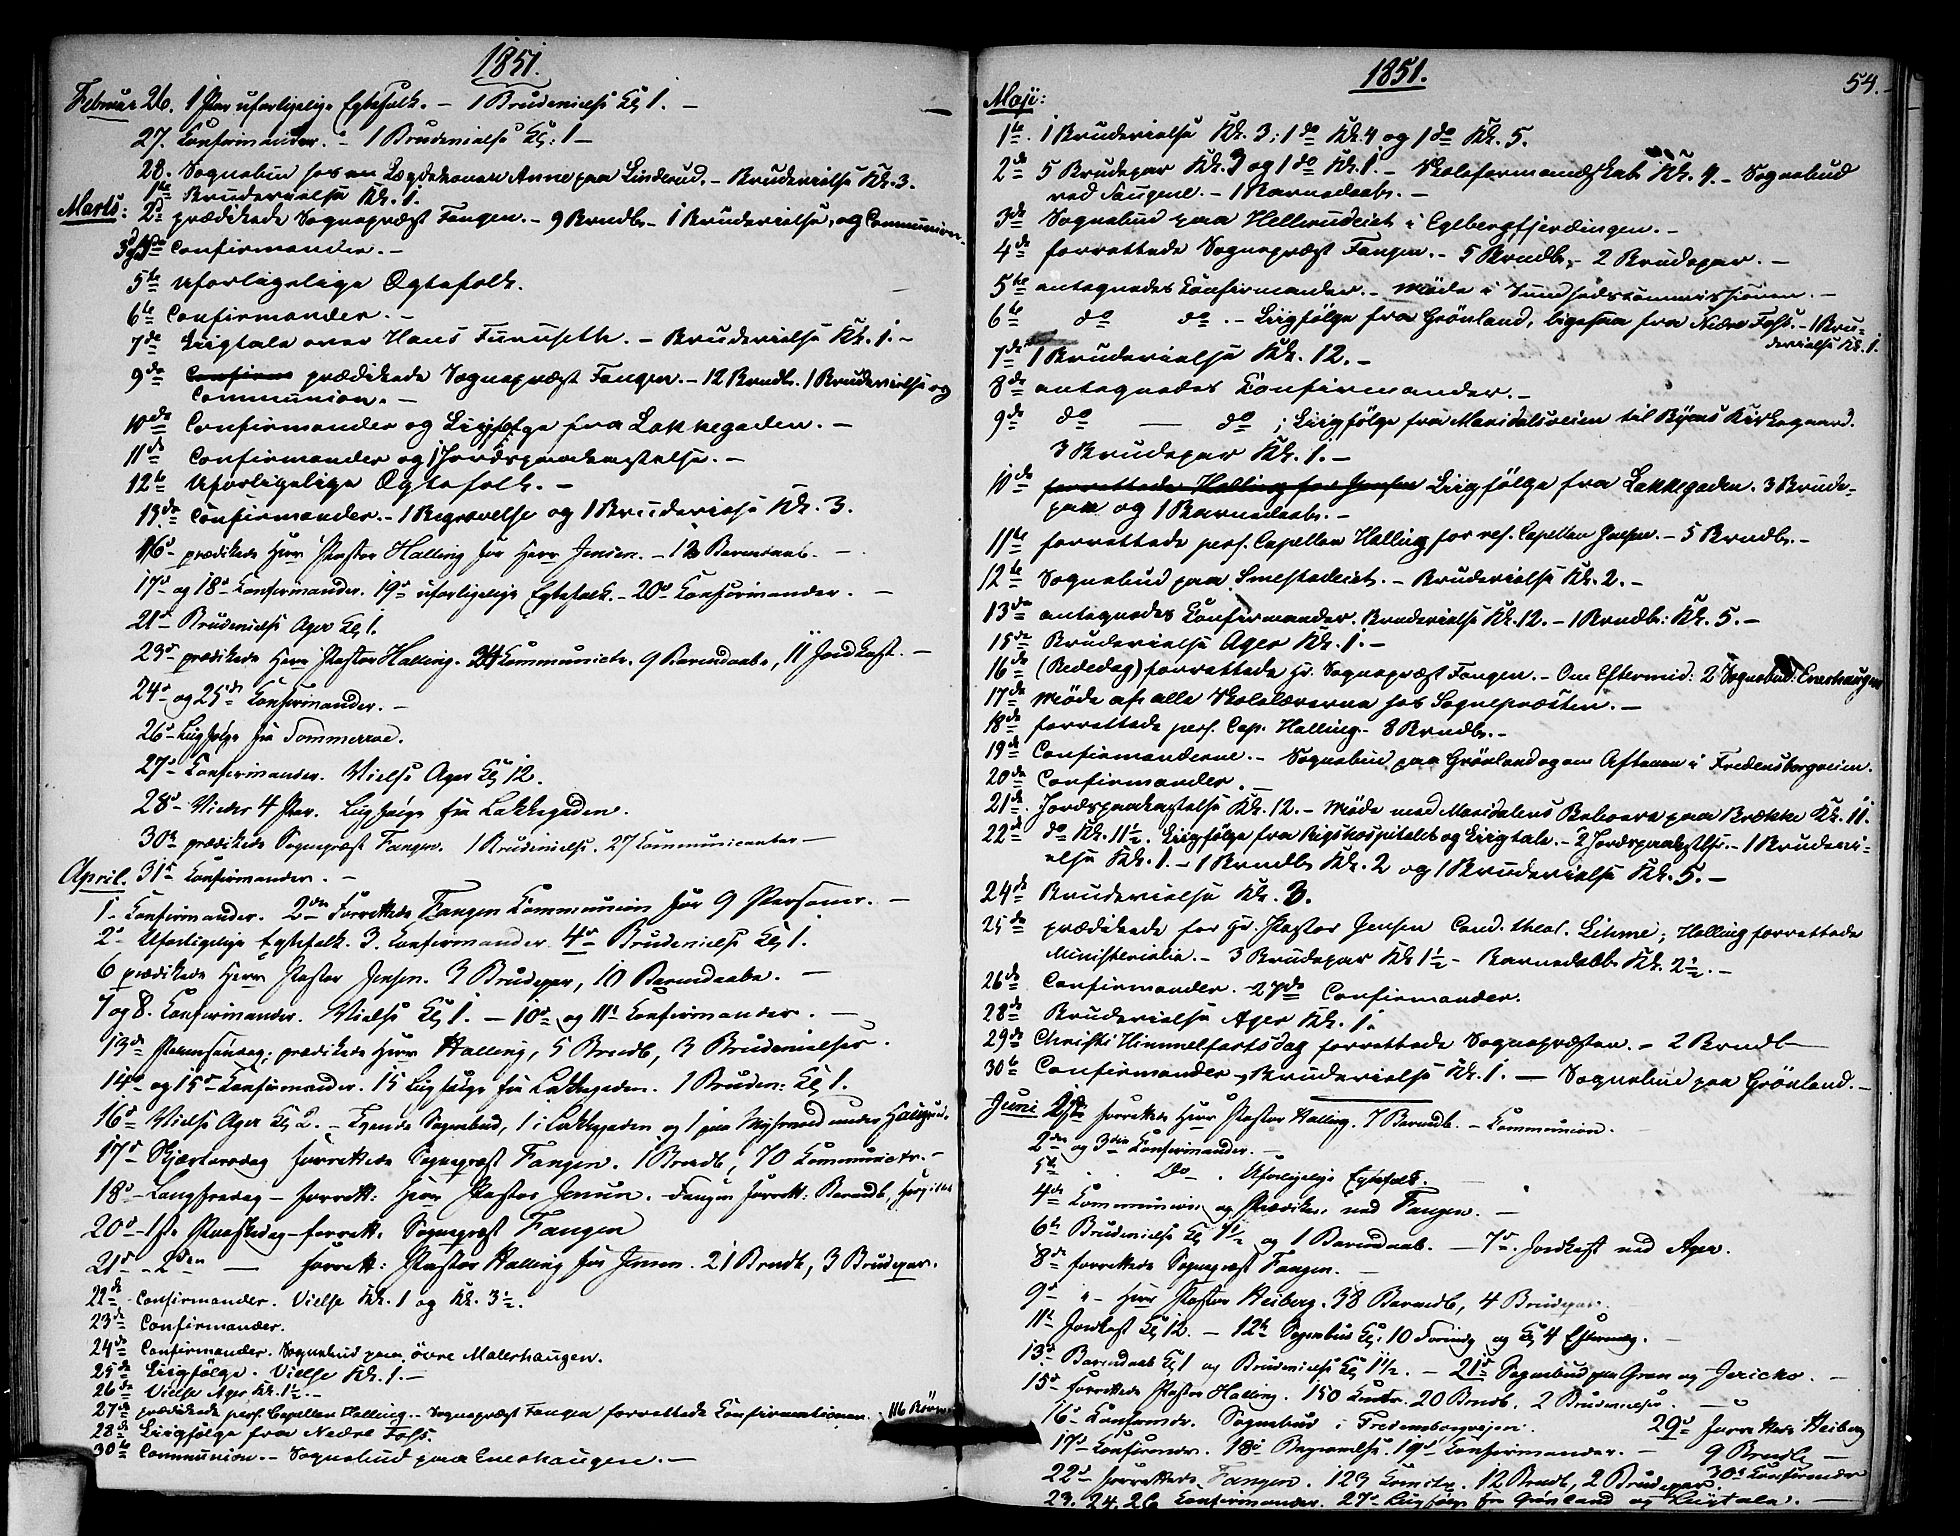 1851.
Februar 26. 1 Par uforligelige Egtefolk. – 1 Brudevielse Kl 1. –
27. Confirmander. – 1 Brudevielse Kl: 1 –
28. Sognebud hos en Lægdekone Anne paa Linderud. – Brudevielse Kl. 3.
Marts: 1ste Brudevielse Kl. 1.
2d prædikede Sognepræst Fangen. – 9 Brndb. – 1 Brudevielse, og Communion.
3d Confirmander. –
5te Uforligelige Ægtefolk.
6te Confirmander. –
7de Liigtale over Hans Furuseth. – Brudevielse Kl. 1. –
9de prædikede Sognepræst Fangen. – 12 Brndb. 1 Brudevielse og
Communion. –
10de Confirmander og Liigfølge fra Lakkegaden. –
11te Confirmander og 1 Jordspaakastelse. –
12te Uforligelige Ægtefolk. –
13de Confirmander. – 1 Begravelse og 1 Brudevielse Kl. 3.
16d prædikede Herr Pastor Halling for Herr Jensen. – 12 Barnedaab. –
17d og 18d Konfirmander. 19d uforligelige Egtefolk. – 20d Konfirmander. –
21d Brudevielse Ager Kl 1.
23d prædikede Herr Pastor Halling. Kommunictr. 9 Barnedaabe, 11 Jordkast. –
24d og 25de Konfirmander. –
26d Liigfølge fra Tømmerroe.
27d Konfirmander. Vielse Ager Kl 12.
28d Viedes 4 Par. Liigfølge fra Lakkegaden.
30d prædikede Sognepræst Fangen. 1 Brudevielse. 27 Kommunicanter –
April. 31d Konfirmander. –
1. Konfirmander. 2den Forrettede Fangen Kommunion for 9 Personer. –
2d Uforligelige Egtefolk. 3. Konfirmander. 4d Brudevielse Kl 1.
6 prædikede Herr Pastor Jensen. 3 Brudepar, 10 Barnedaabe. –
7 og 8. Konfirmander. Vielse Kl 1. – 10d og 11t Konfirmander. –
13de Palmesøndag; prædikede Herr Halling, 5 Brndb, 3 Brudevielser.
14d og 15d Konfirmander. 15 Liigfølge fra Lakkegaden. 1 Brudev: Kl 1.
16d Vielse Ager Kl 2. – Sognebud, 1 i Lakkegaden og 1 paa under Haugerud.
17d Skjærtorsdag forrettede Sognepræst Fangen. 1 Brndb, 70 Kommunictr. –
18d Langfredag – forrett: Herr Pastor Jensen. – Fangen forrett: Barndb,
20d – 1ste Paaskedag – forrett. Sognepræst Fangen
21d – 2den — forrett: Pastor Halling for Jensen. 21 Brndb, 3 Brudepar.
22de Confirmander. Vielse Kl. 1 og Kl. 3½.
23de Confirmander.
24de Confirmander. Sognebud paa øvre Malerhaugen.
25de Liigfølge. Vielse Kl. 1. –
26de Vielse Ager Kl. 1½. –
27de prædikede pers. Capellan Halling. – Sognepræst Fangen forrettede Confirmationen. 116 Børn
28de Liigfølge fra Nedre Foss.
30te Communion. – Sognebud paa Enerhaugen. –
1851.
54.
Maji:
1te. 1 Brudevielse Kl. 3; 1 do Kl. 4 og 1 do Kl. 5.
2de 5 Brudepar Kl. 3 og 1 do Kl. 1. – Skoleformandskab Kl. 4. – Sognebud
ved Saugene. – 1 Barnedaab. –
3de Sognebud paa Hellerudeiet i Egebergfjerdingen. –
4de forrettede Sognepræst Fangen. – 5 Brndb, – 2 Brudepar. –
5te antegnedes Confirmander. – Møde i Sundhedscommissionen. –
6te do do. – Liigfølge fra Grønland, ligesaa fra Nedre Foss. – 1 Bru=
devielse Kl. 1.
7de 1 Brudevielse Kl. 12. –
8de antegnedes Confirmander. –
9de do — do; Liigfølge fra Maridalsveien til Byens Kirkegaard.
3 Brudepar Kl. 1. –
10de forrettede Halling for Jensen Liigfølge fra Lakkegaden. 3 Brude=
par og 1 Barnedaab. –
11te forrettede pers. Capellan Halling for res. Capellan Jensen. – 5 Brndb. –
12te Sognebud paa Smestadeiet. – Brudevielse Kl. 2. –
13de antegnedes Confirmander. Brudevielse Kl. 12. – 1 Brndb: Kl. 5. –
15de Brudevielse Ager Kl. 1. –
16de (Bededag) forrettede Hr. Sognepræst Fangen. – Om Eftermid: 2 Sognebud: Enerhaugen
17de Møde af alle Skolelærerne hos Sognepræsten. –
18de forrettede pers. Cap. Halling. – 8 Brndb. –
19de Confirmanderne. – Sognebud paa Grønland og om Aftenen i Fredensborgveien.
20de Confirmander. –
21de. Jordspaakastelse Kl. 12. – Møde med Maridalens Beboere paa Brække Kl. 11.
22de do Kl. 11½. Liigfølge fra Rigshospitalet og Liigtale. – 2 Jordspaakastelse. – 1 Brudevi=
else Kl. 1. – 1 Brndb Kl. 2 og 1 Brudevielse Kl. 5. –
24de Brudevielse Kl. 3.
25de prædikede for Hr. Pastor Jensen Cand. theol. Lihme; Halling forrettede
Ministerialia. – 3 Brudepar Kl 1½ – Barnedaab Kl. 2½. –
26de Confirmander. – 27de Confirmander.
28de Brudevielse Ager Kl. 1.
29de Christi Himmelfartsdag forrettede Sognepræsten. – 2 Brndb –
30te Confirmander, Brudevielse Kl. 1. — Sognebud paa Grønland. –
Juni forrettede Herr Pastor Halling. 7 Barndb. – Kommunion.
2den og 3die Konfirmander. –
5te Do –. Uforligelige Egtefolk. –
4de Kommunion og Prædiken ved Fangen. –
6te Brudevielse Kl 1½ og 1 Barnedaab. — 7d. Jordkast ved Ager.
8de forrettede Sognepræst Fangen. –
9d " – Herr Pastor Heiberg. 38 Barndb, 4 Brudepar.
11te Jordkast Kl 12. – 12te Sognebud Kl: 10 Formidg og Kl 4 Eftermdg. –
13d Barnedaab Kl 1 og Brudevielse Kl 1½. – 21d Sognebud paa Gran og Jericho. –
15d forrettede Pastor Halling. 150 Kmtr. 20 Brndb. 2 Brudevielse. –
16d Konfirmdr. Sognebud i Fredensborgveien.
29d forrettede Heiberg
17d Konfirmdr. 18d Begravelse. 19d Konfirmander. –
9 Brndb –
22d forrettede Fangen. 123 Kmctr. 12 Brndb, 2 Brudepar.
30d Konfirmdr
23. 24. 26 Konfirmander. 27d Liigfølge fra Grønland og Liigtale. –